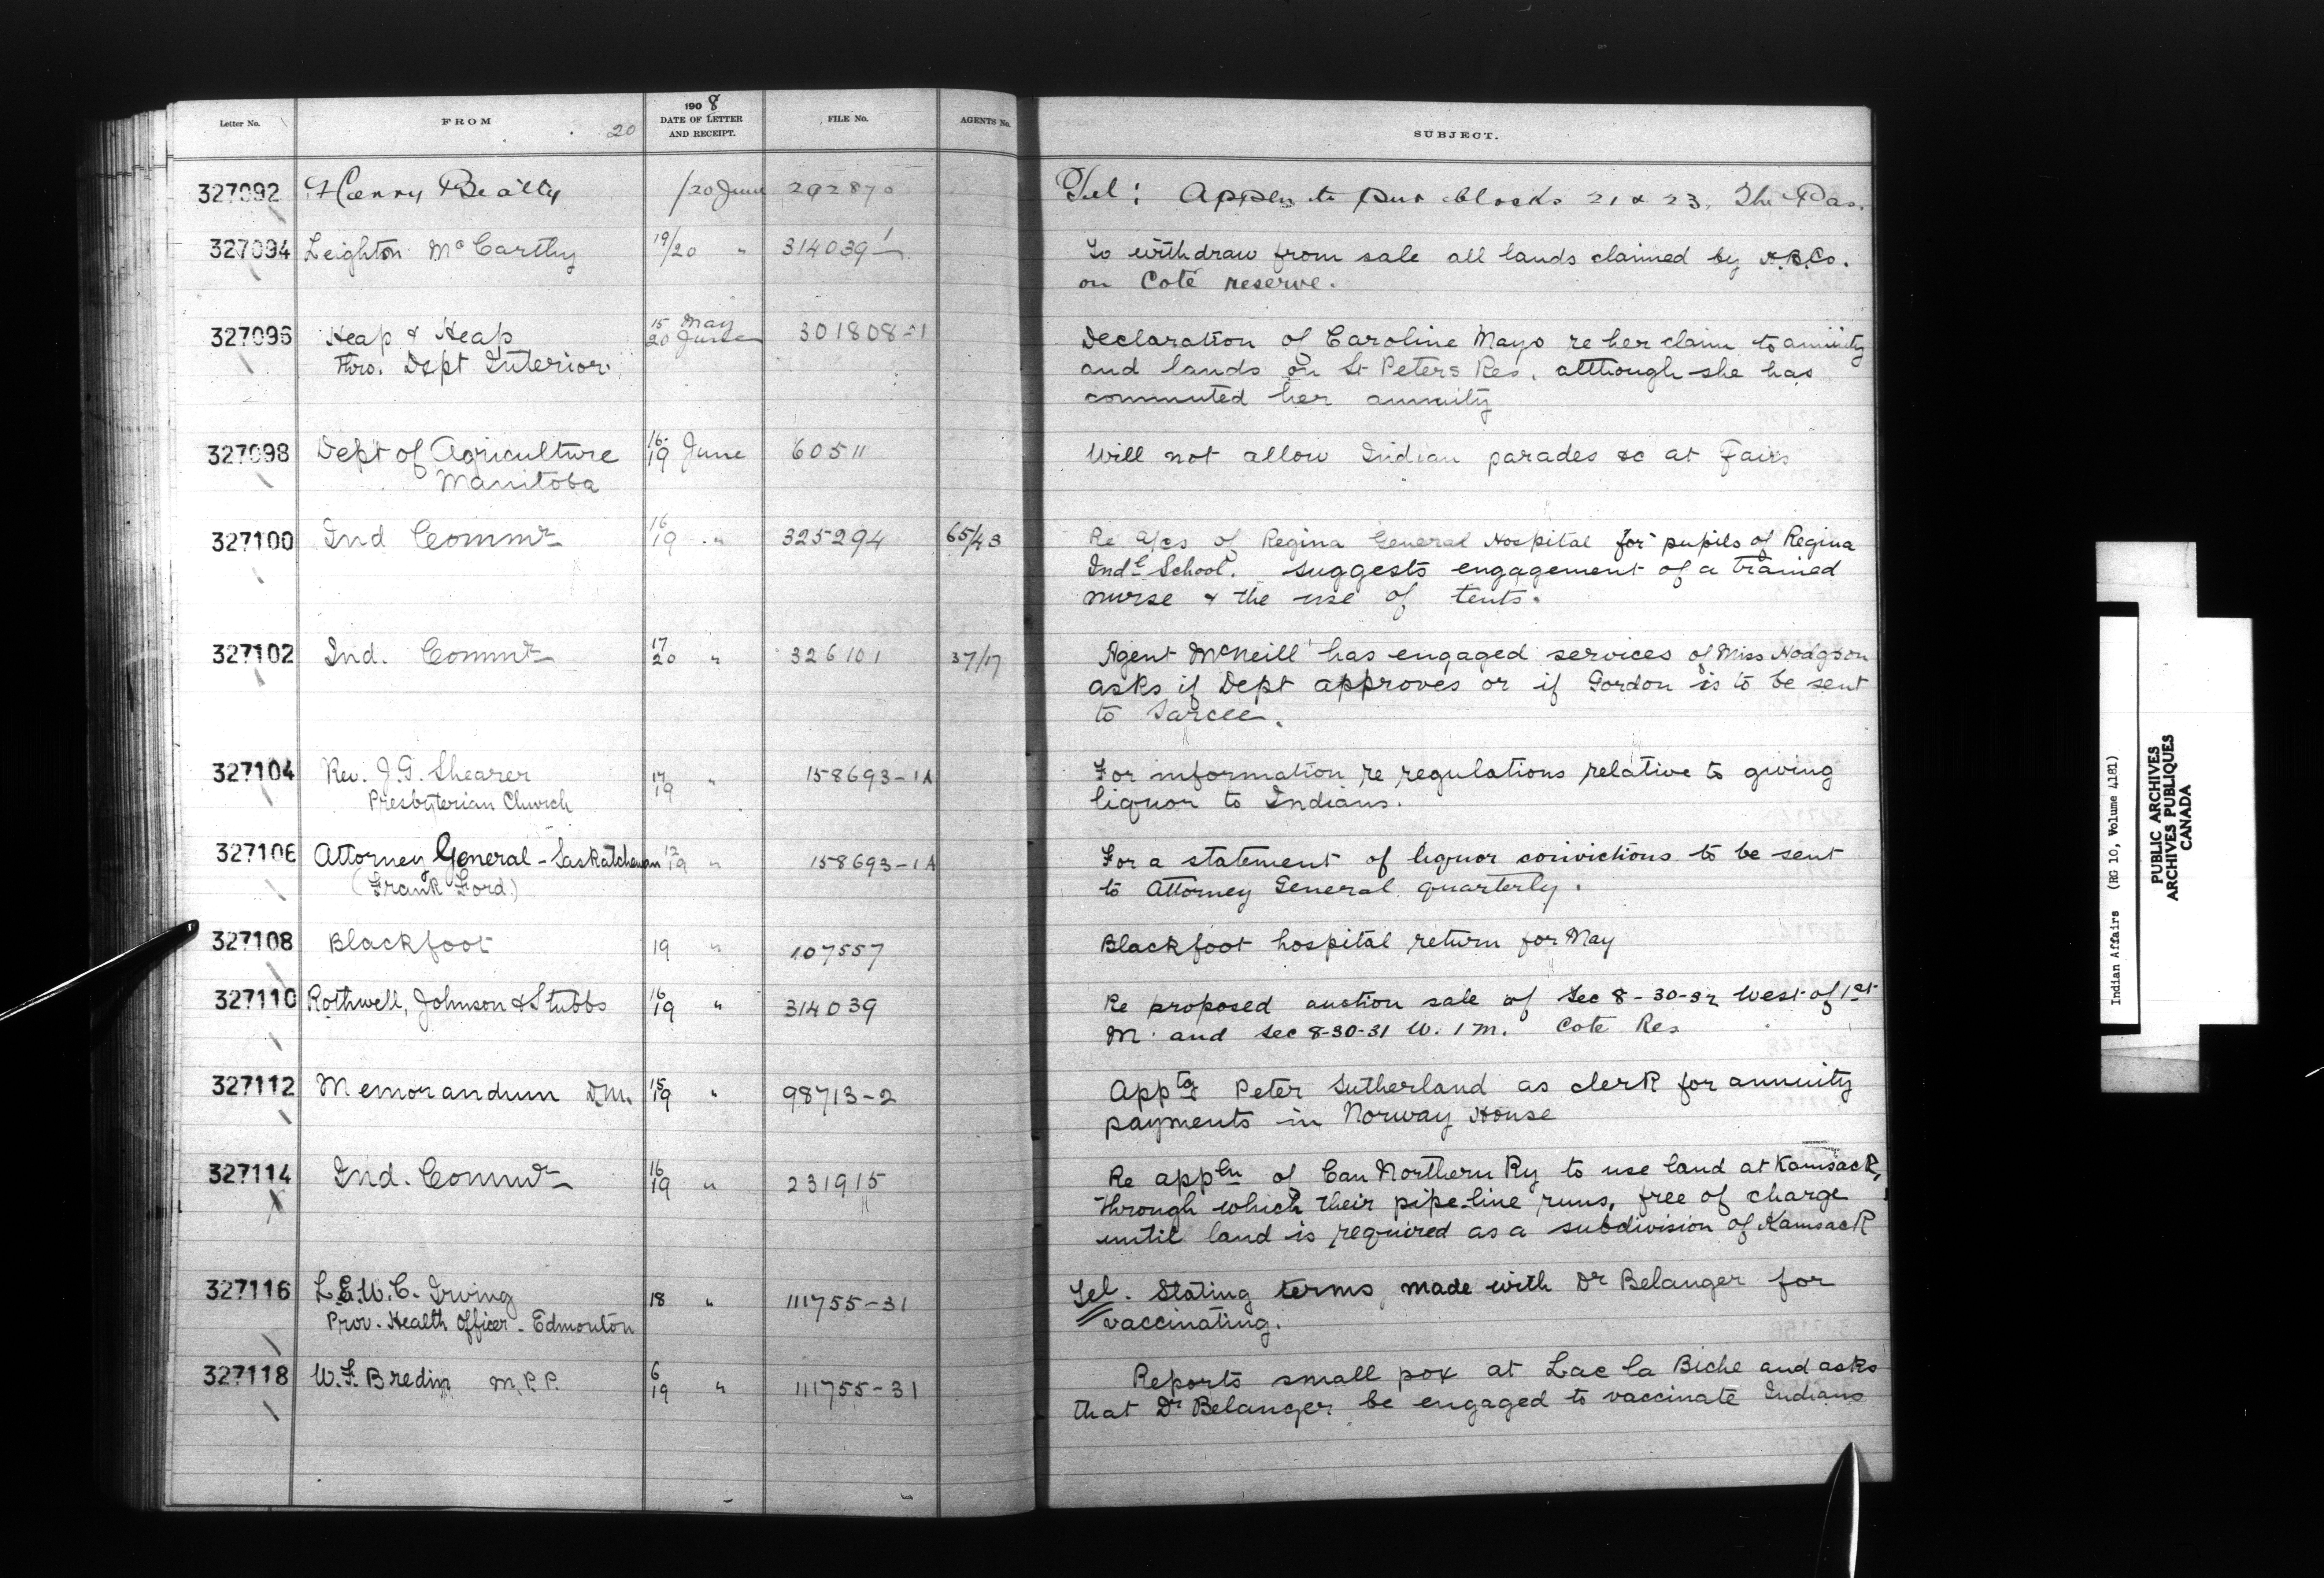 Letter No. FROM 20 1908 DATE OF LETTER AND RECEIPT. FILE No. AGENTS No. SUBJECT.
327092 Harry Beatty /20 June 292870 Tel: Appln to pur blocks 21 & 23. The Pas.
327094 Leighton McCarthy 19/20 " 314039-1 To withdraw from sale all lands claimed by H.B.Co.
on Coté reserve.
327096 Heap & Heap 15 May 20 June 301808-1 Declaration of Caroline Mayo re her claim to annuity
Thro. Dept Interior. and lands on St Peters Res. although she has
commuted her annuity
327098 Dept of Agriculture 16 19 June 60511 Will not allow Indian parades &c at Fairs
Manitoba
327100 Ind Commr 16 19 " 325294 65/43 Re a/cs of Regina General Hospital for pupils of Regina
Indl School. Suggests engagement of a trained
nurse & the use of tents.
327102 Ind. Commr 17 20 " 326101 37/17 Agent McNeill has engaged services of Miss Hodgson
asks if Dept approves or if Gordon is to be sent
to Sarcee.
327104 Rev. J.G. Shearer 17 19 " 158693-1A For information re regulations relative to giving
Presbyterian Church liquor to Indians.
327106 Attorney General - Saskatchewan 19 " 158693-1A For a statement of liquor convictions to be sent
(Frank Ford) to Attorney General quarterly.
327108 Blackfoot 19 " 107557 Blackfoot hospital return for May
327110 Rothwell, Johnson & Stubbs 16 19 " 314039 Re proposed auction sale of Sec 8-30-32 West of 1st
M. and Sec 8-30-31 W. 1 M. Cote Res
327112 Memorandum D.M. 15 19 " 98713-2 Apptg Peter Sutherland as clerk for annuity
payments in Norway House
327114 Ind. Commr 16 19 " 231915 Re appln of Can Northern Ry to use land at Kamsack,
through which their pipe-line runs, free of charge
until land is required as a subdivision of Kamsack
327116 L.E.W.C. Irving 18 " 111755-31 Tel. Stating terms made with Dr Belanger for
Prov. Health Officer - Edmonton vaccinating.
327118 W.F. Bredin M.P.P. 6 19 " 111755-31 Reports small pox at Lac la Biche and asks
that Dr Belanger be engaged to vaccinate Indians
Indian Affairs (RG 10, Volume 4181)
PUBLIC ARCHIVES
ARCHIVES PUBLIQUES
CANADA